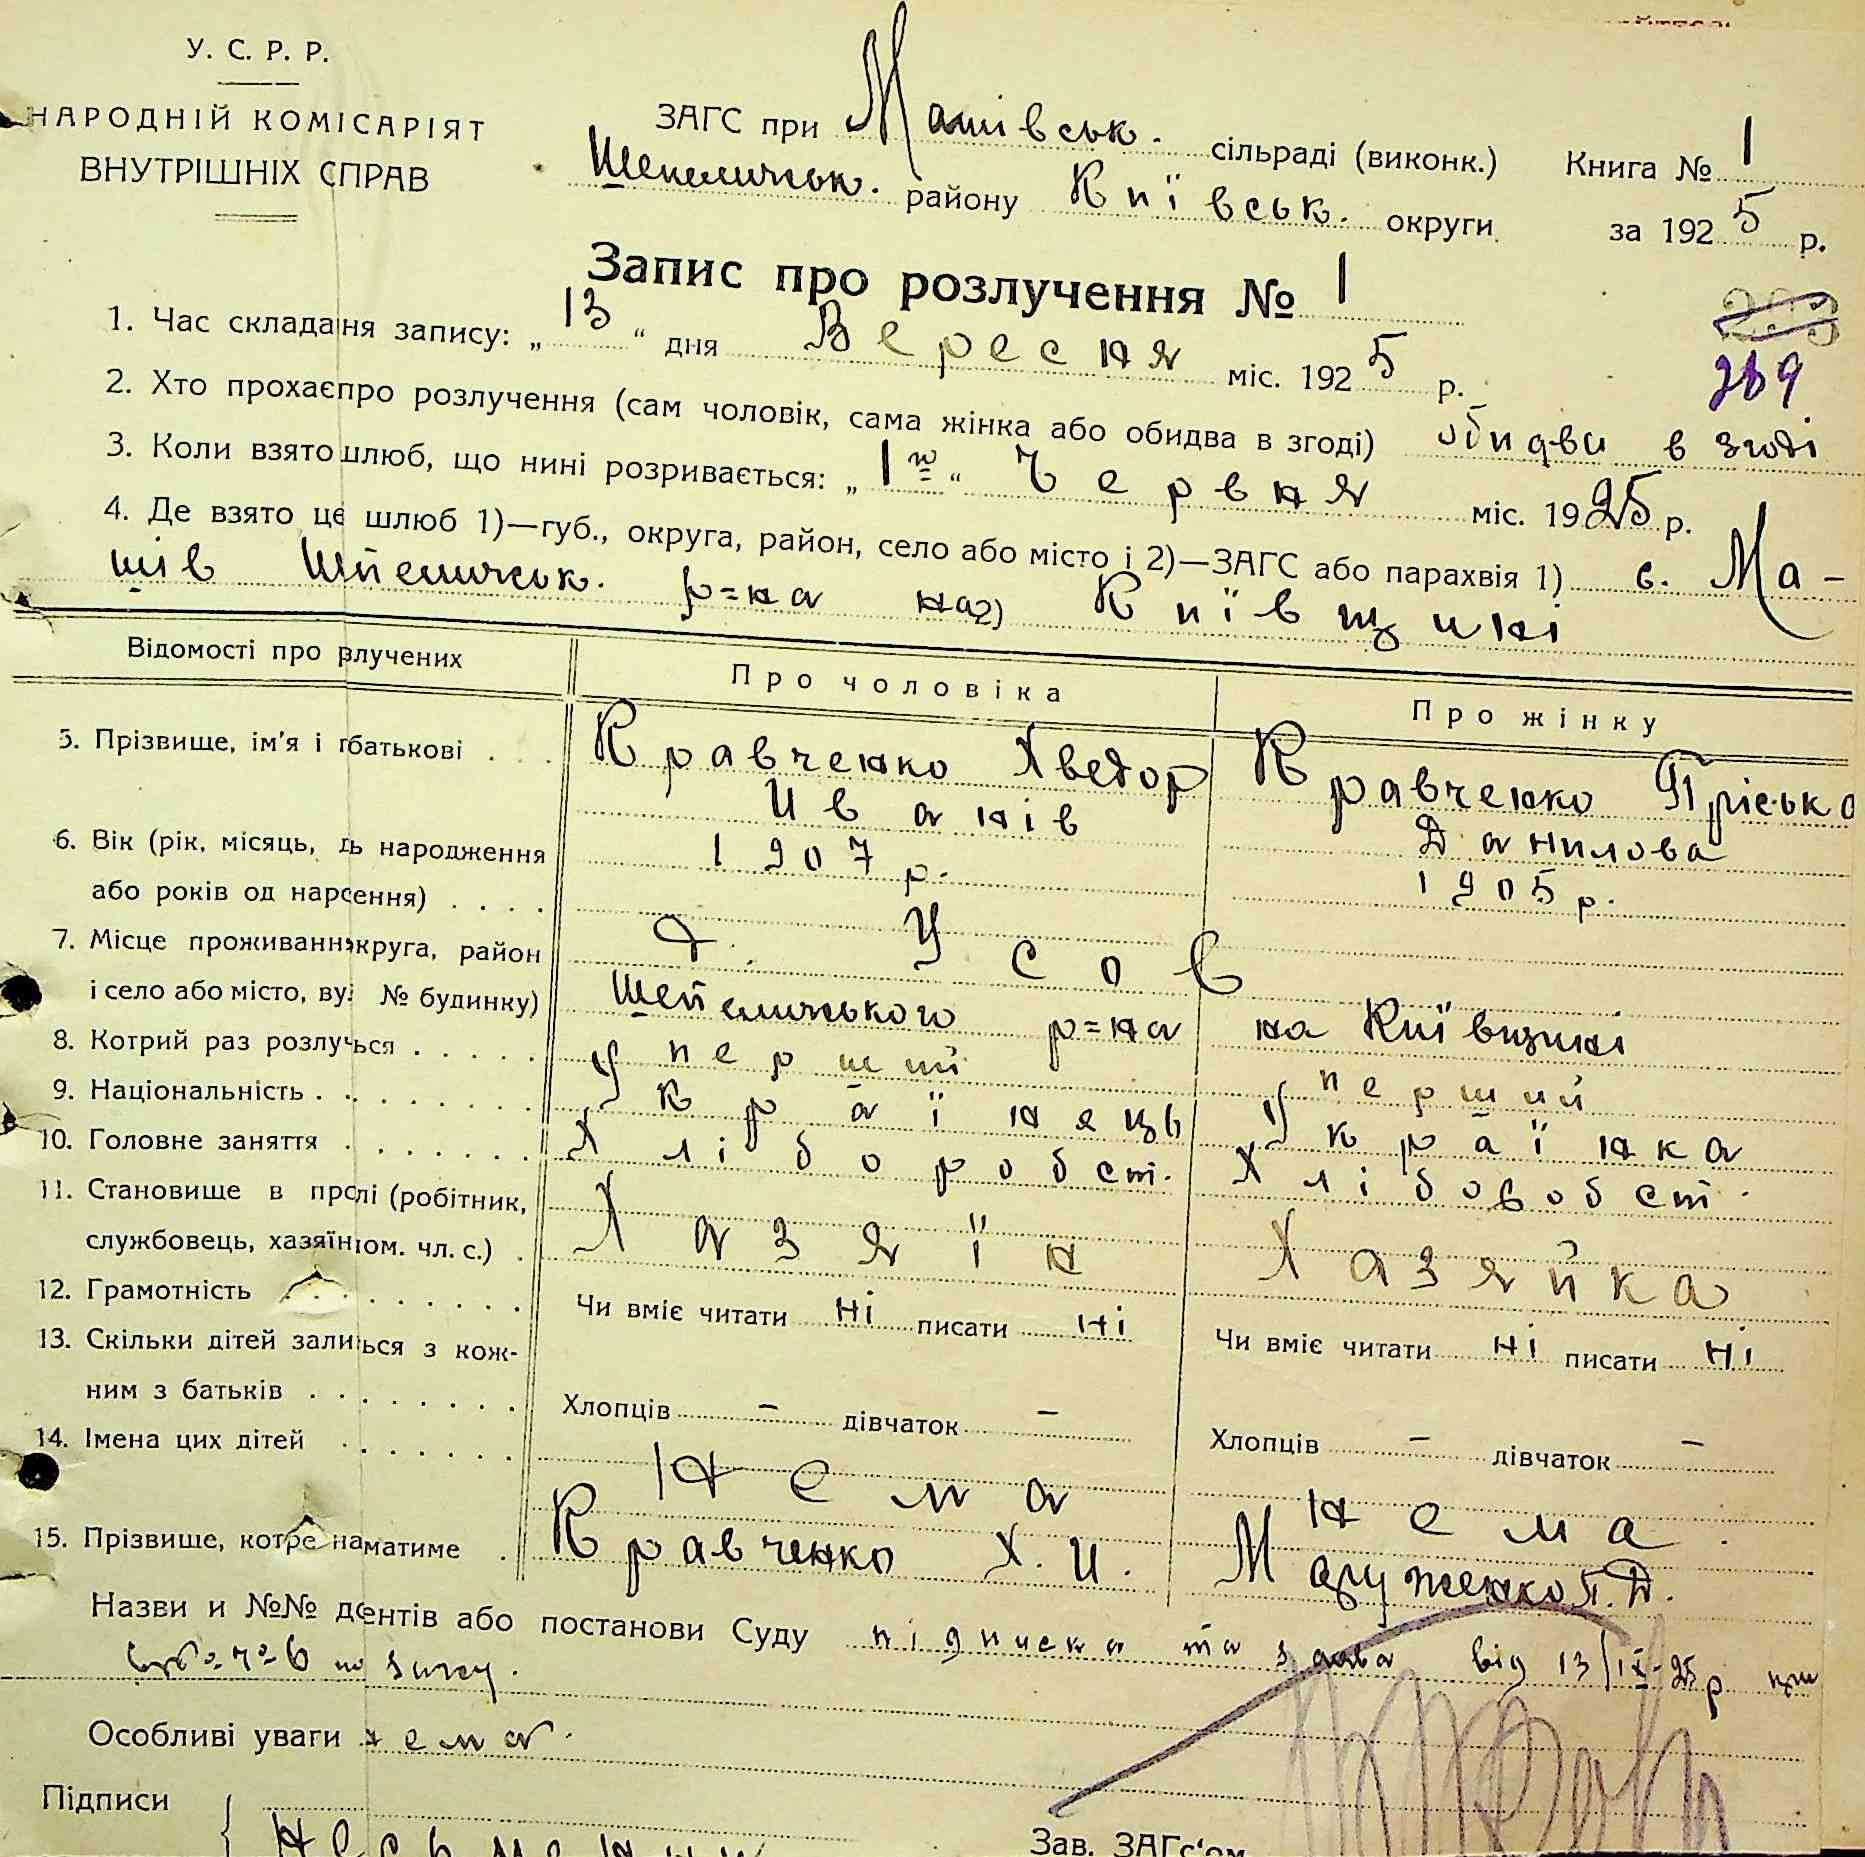 У. С. Р. Р.
НАРОДНІЙ КОМІСАРІЯТ
ВНУТРІШНІХ СПРАВ
ЗАГС при Машівськ. сільраді (виконк.) Книга № 1
Шепелицьк. району Київськ. округи за 1925 р.
Запис про розлучення № 1
289
1. Час складаня запису: „13“ дня Вересня міс. 1925 р.
2. Хто прохаєпро розлучення (сам чоловік, сама жінка або обидва в згоді) обидви в згоді
3. Коли взято шлюб, що нині розривається: „1го“ Червня міс. 1925 р.
4. Де взято це шлюб 1)—губ., округа, район, село або місто і 2)—ЗАГС або парахвія 1) с. Ма-
шів Шепелицьк. р=на на 2) Київщині
Відомості про влучених Про чоловіка Про жінку
5. Прізвище, ім'я і пбатькові Кравченко Хведор Кравченко Пріська
Иванів Данилова
6. Вік (рік, місяць, дь народження 1907 р. 1905 р.
або років од нарсення)
7. Місце проживанн круга, район д. Усов
і село або місто, ву. № будинку) Шепелицького р=на на Київщині
8. Котрий раз розлучься У перший У перший
9. Національність Українець Українка
10. Головне заняття Хліборобст. Хлібовобст.
11. Становище в пролі (робітник,
службовець, хазяїн ом. чл. с.) Хазяїн Хазяйка
12. Грамотність Чи вміє читати ні писати ні Чи вміє читати ні писати ні
13. Скільки дітей залиься з кож-
ним з батьків Хлопців — дівчаток — Хлопців — дівчаток —
14. Імена цих дітей Нема Нема
15. Прізвище, котре наматиме Кравченко Х. И. Маруженко П. Д.
Назви и №№ дентів або постанови Суду підписка та заява від 13/IX-25 р
Особливі уваги нема.
Підписи
Несьменни
Зав. ЗАГс'ом